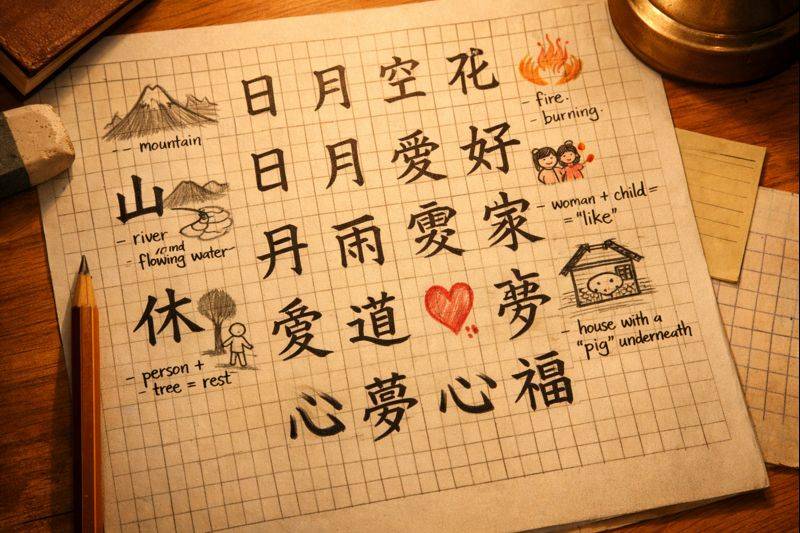 日 月 空
- fire.
- burning.
-- mountain
日 月 愛 好
山
- woman + child =
= "like"
- river
- flowing water
丹 雨 家
休
愛 道
- house with a
"pig" underneath
- person +
- tree = rest
心 夢 心 福